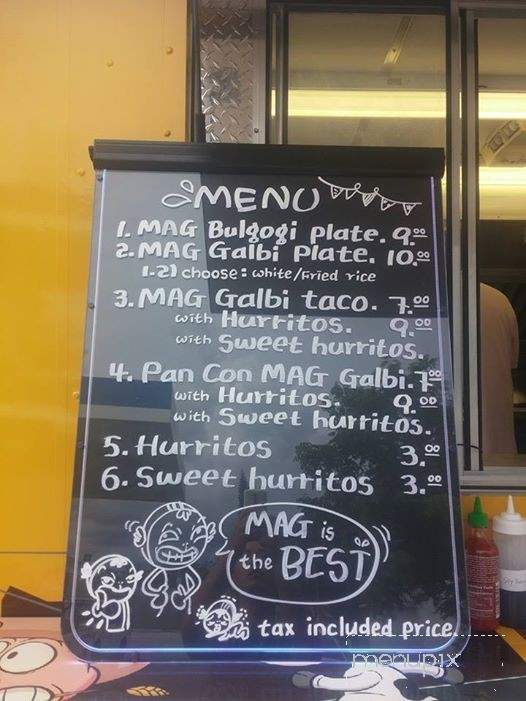 MENU
1. MAG Bulgogi Plate. 9.00
2. MAG Galbi Plate. 10.00
1.2) choose: white/Fried rice
3. MAG Galbi taco. 7.00
with Hurritos. 9.00
with Sweet hurritos.
4. Pan Con MAG Galbi. 7.00
with Hurritos. 9.00
with Sweet hurritos.
5. Hurritos 3.00
6. Sweet hurritos 3.00
MAG is
the BEST
tax included price.
menupix